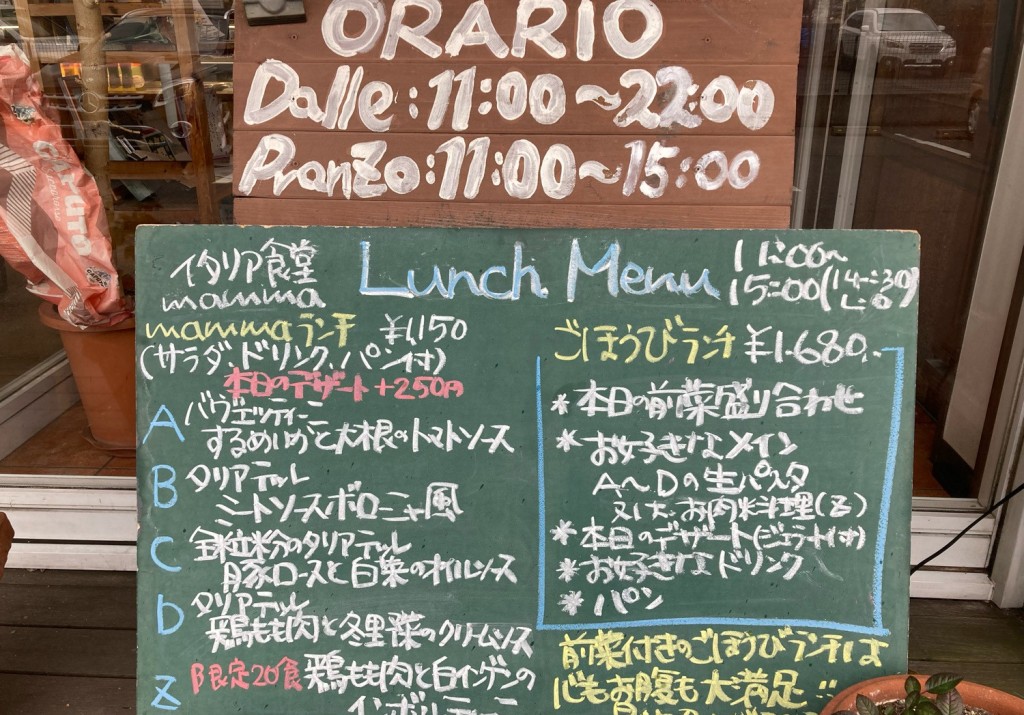 ORARIO
Dalle:11:00~22:00
Pranzo:11:00~15:00
イタリア食堂
mamma
Lunch Menu
11:00~
15:00(14:30
L.O)
mammaランチ ¥1,150
(サラダ、ドリンク、パン付)
本日のデザート+250円
A パヴェッティーニ
するめいかと大根のトマトソース
B タリアテッレ
ミートソースボロニャ風
C 全粒粉のタリアテッレ
豚ロースと白菜のオイルソース
D タリアテッレ
鶏もも肉と冬野菜のクリームソース
Z 限定20食 鶏もも肉と白インゲンの
インボルティーニ
ごほうびランチ ¥1,680.
*本日の前菜盛り合わせ
*お好きなメイン
A~Dの生パスタ
又は、お肉料理(Z)
*本日のデザート(ジェラート付)
*お好きなドリンク
*パン
前菜付きのごほうびランチは
心もお腹も大満足!!